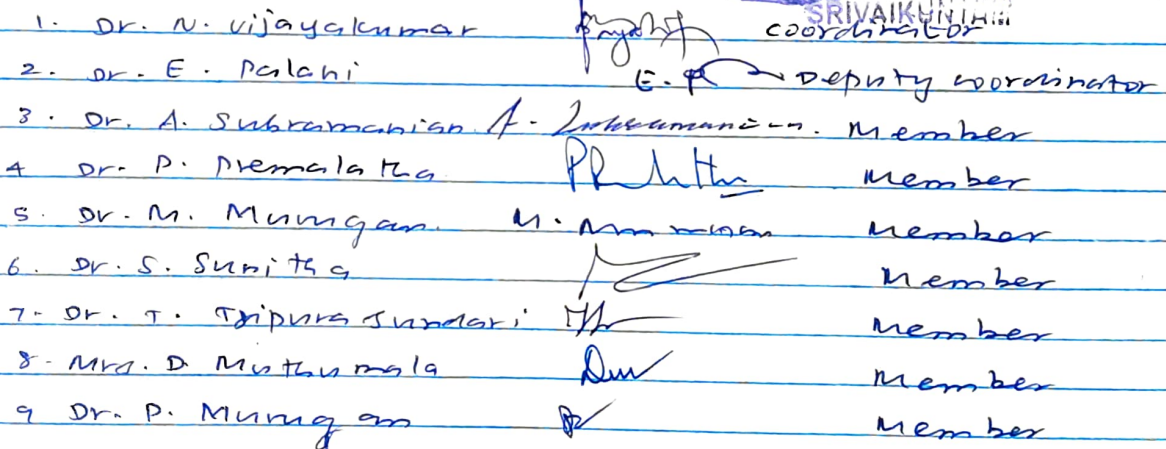 SRIVAIKUNTAM
1. Dr. N. Vijayakumar coordinator
2. Dr. E. Palani E. P Deputy coordinator
3. Dr. A. Subramanian A. Subramanian. Member
4 Dr. P. Premalatha Member
5. Dr. M. Murugan. M. Murugan Member
6. Dr. S. Sunitha Member
7. Dr. T. Tripura Sundari Member
8. Mrs. D. Muthumala Member
9 Dr. P. Murugan Member